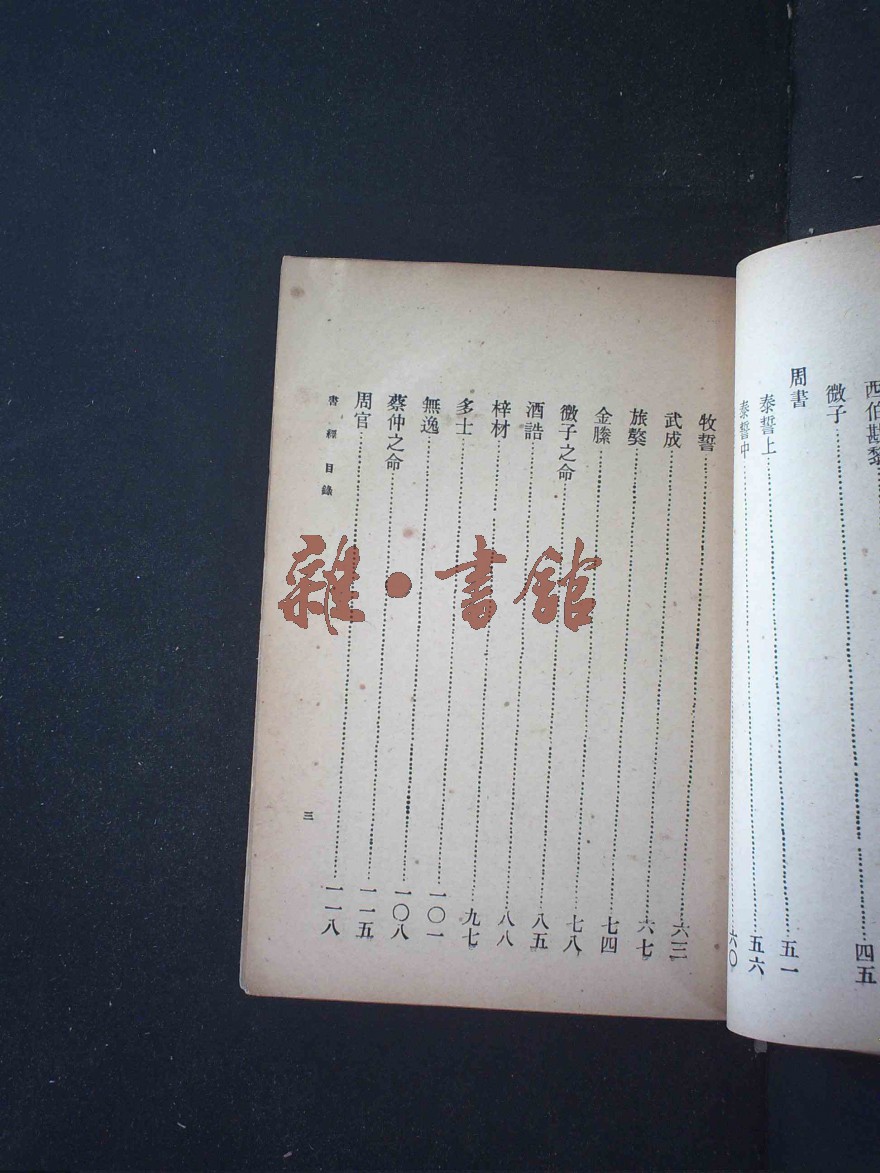 西伯戡黎
微子……四五
周書
泰誓上……五一
泰誓中……五六
……六〇
牧誓……六三
武成……六七
旅獒……七四
金縢……七八
微子之命……八五
酒誥……八八
梓材……九七
多士……一〇一
無逸……一〇八
蔡仲之命……一一五
周官……一一八
書經目錄
三
雜·書館